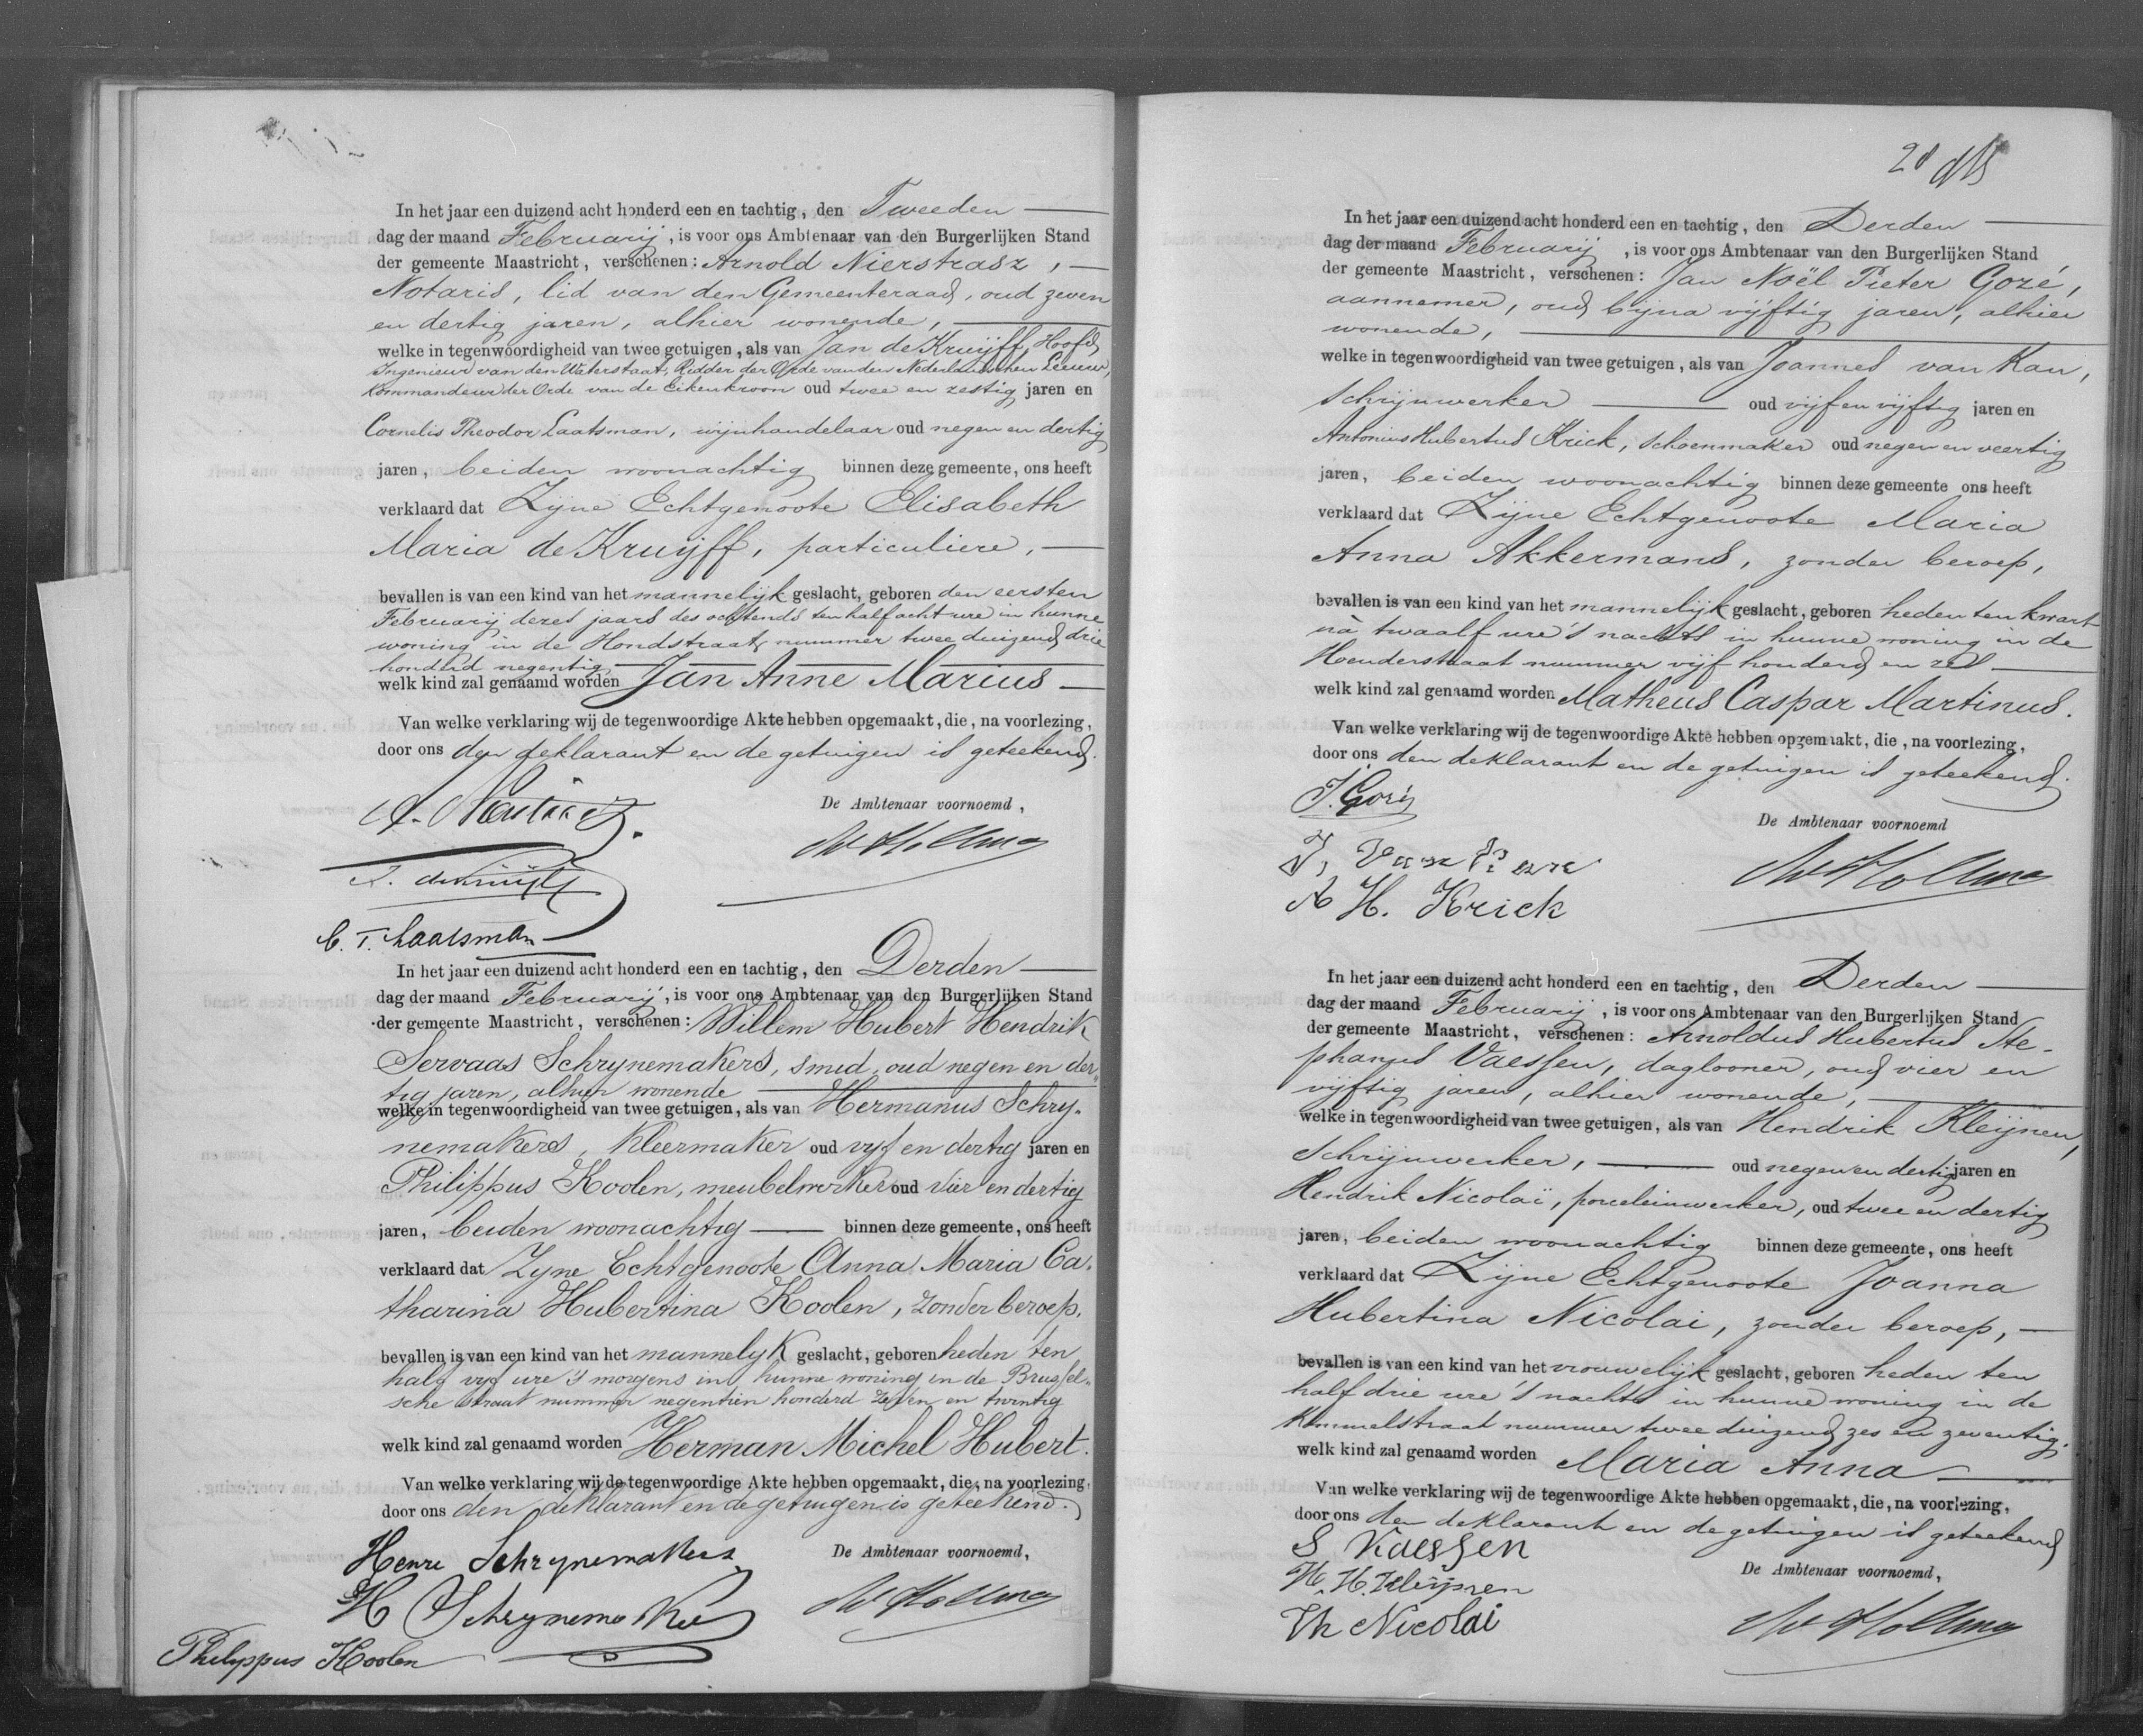 In het jaar een duizend acht honderd een en tachtig, den Tweeden
dag der maand Februarij, is voor ons Ambtenaar van den Burgerlijken Stand
der gemeente Maastricht, verschenen: Arnold Nierstrasz,
Notaris, lid van den Gemeenteraad, oud zeven
en dertig jaren, alhier wonende,
welke in tegenwoordigheid van twee getuigen, als van Jan de Kruijff, Hoofd
Ingenieur van den Waterstaat, Ridder der Orde van den Nederlandschen Leeuw,
Kommandeur der Orde van de Eikenkroon oud twee en zestig jaren en
Cornelis Theodor Laatsman, wijnhandelaar oud negen en dertig
jaren, beiden woonachtig binnen deze gemeente, ons heeft
verklaard dat Zijne Echtgenoote Elisabeth
Maria de Kruijff, particuliere,
bevallen is van een kind van het mannelijk geslacht, geboren den eersten
Februarij dezes jaars des ochtends ten half acht ure in hunne
woning in de Hondstraat nummer twee duizend drie
honderd negentig
welk kind zal genaamd worden Jan Anne Marius
Van welke verklaring wij de tegenwoordige Akte hebben opgemaakt, die, na voorlezing,
door ons den deklarant en de getuigen is geteekend.
De Ambtenaar voornoemd,
C. T. Laatsman
In het jaar een duizend acht honderd een en tachtig, den Derden
dag der maand Februarij, is voor ons Ambtenaar van den Burgerlijken Stand
der gemeente Maastricht, verschenen: Willem Hubert Hendrik
Servaas Schrynemakers, smid, oud negen en der-
tig jaren, alhier wonende
welke in tegenwoordigheid van twee getuigen, als van Hermanus Schry-
nemakers, Kleermaker oud vyf en dertig jaren en
Philippus Koolen, meubelwerker oud vier en dertig
jaren, beiden woonachtig binnen deze gemeente, ons heeft
verklaard dat Zyne Echtgenoote Anna Maria Ca-
tharina Hubertina Koolen, zonder beroep,
bevallen is van een kind van het mannelyk geslacht, geboren heden ten
half vyf ure 's morgens in hunne woning in de Brussel-
sche straat nummer negentien honderd zeven en twintig
welk kind zal genaamd worden Herman Michel Hubert.
Van welke verklaring wij de tegenwoordige Akte hebben opgemaakt, die, na voorlezing,
door ons den deklarant en de getuigen is geteekend.
Henri Schrynemakers
De Ambtenaar voornoemd,
H Schrynemakers
Philyppus Koolen
28
In het jaar een duizend acht honderd een en tachtig, den Derden
dag der maand Februarij, is voor ons Ambtenaar van den Burgerlijken Stand
der gemeente Maastricht, verschenen: Jan Noël Pieter Gozé,
aannemer, oud bijna vijftig jaren, alhier
wonende,
welke in tegenwoordigheid van twee getuigen, als van Joannes van Kan,
schrijnwerker oud vijf en vijftig jaren en
Antonius Hubertus Krick, schoenmaker oud negen en veertig
jaren, beiden woonachtig binnen deze gemeente ons heeft
verklaard dat Zijne Echtgenoote Maria
Anna Akkermans, zonder beroep,
bevallen is van een kind van het mannelijk geslacht, geboren heden ten kwart
nà twaalf ure 's nachts in hunne woning in de
Hoenderstraat nummer vijf honderd en zes
welk kind zal genaamd worden Matheus Caspar Martinus.
Van welke verklaring wij de tegenwoordige Akte hebben opgemaakt, die, na voorlezing,
door ons den deklarant en de getuigen is geteekend.
J. Gozé
De Ambtenaar voornoemd
J. Van Kan
A H. Krick
In het jaar een duizend acht honderd een en tachtig, den Derden
dag der maand Februarij, is voor ons Ambtenaar van den Burgerlijken Stand
der gemeente Maastricht, verschenen: Arnoldus Hubertus Ste-
phanus Vaessen, daglooner, oud vier en
vijftig jaren, alhier wonende,
welke in tegenwoordigheid van twee getuigen, als van Hendrik Kleijnen,
schrijnwerker, oud negen en dertig jaren en
Hendrik Nicolaï, porceleinwerker, oud twee en dertig
jaren, beiden woonachtig binnen deze gemeente, ons heeft
verklaard dat Zijne Echtgenoote Joanna
Hubertina Nicolai, zonder beroep,
bevallen is van een kind van het vrouwelijk geslacht, geboren heden ten
half drie ure 's nachts in hunne woning in de
Kommelstraat nummer twee duizend zes en zeventig.
welk kind zal genaamd worden Maria Anna
Van welke verklaring wij de tegenwoordige Akte hebben opgemaakt, die, na voorlezing,
door ons den deklarant en de getuigen is geteekend
S Vaessen
De Ambtenaar voornoemd,
H. H. Kleijnen
Th Nicolai